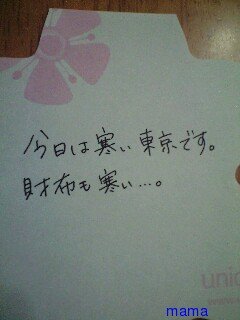 今日は寒い東京です。
財布も寒い…。
unic
mama